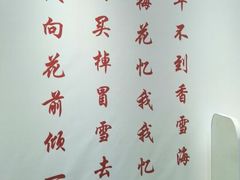 年不到香雪海
梅花忆我我忆
买棹冒雪去
向花前倾